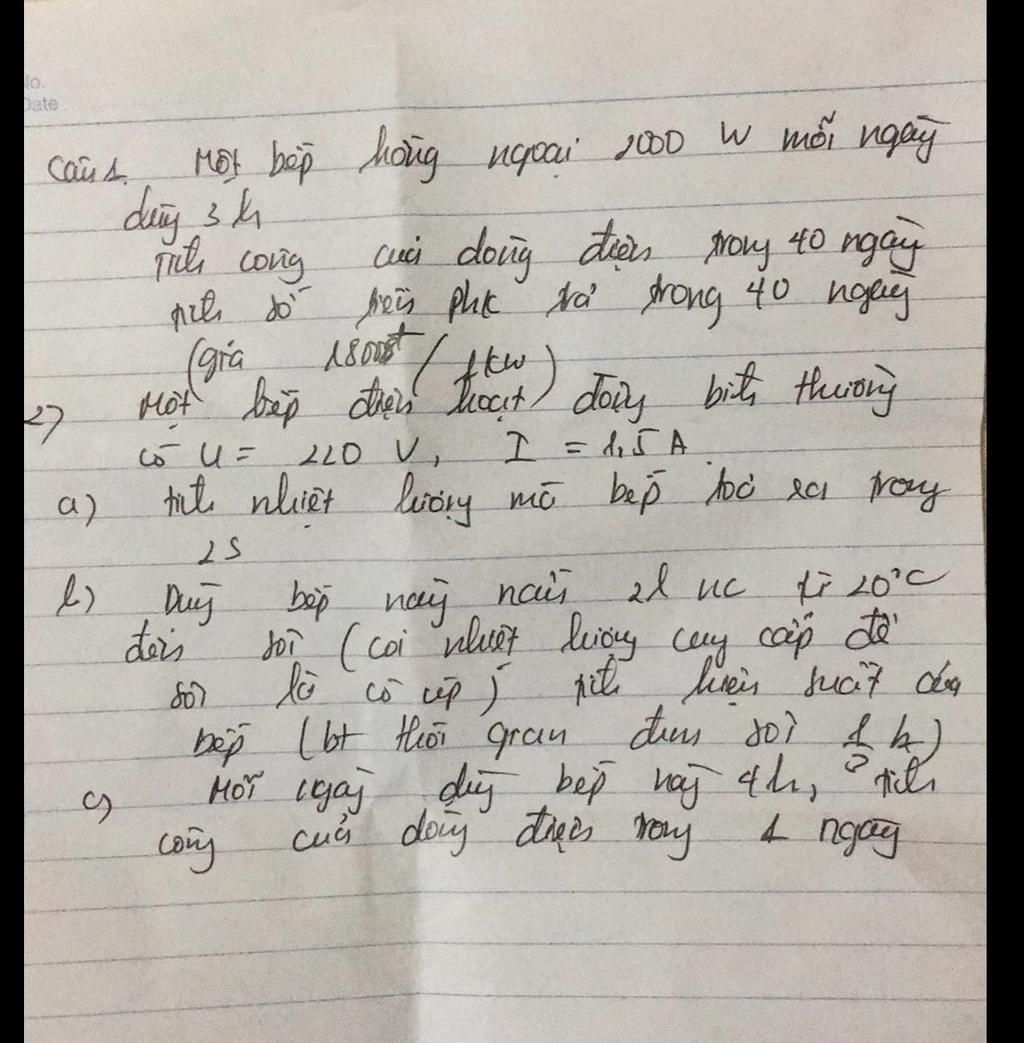 No.
Date
Câu 1. Một bếp hồng ngoại 2000 W mỗi ngày
dùng 3 h
Tính công của dòng điện trong 40 ngày
tính số tiền phk trả trong 40 ngày
(giá 1800đ / 1kw)
2) Một bếp điện hoạt động bình thường
có U = 220 V, I = 1,5 A.
a) tính nhiệt lượng mà bếp toả ra trong
2s
b) Dùng bếp này nấu 2l nc từ 20°C
đến sôi (coi nhiệt lượng cung cấp để
sôi là có ích) tính hiệu suất của
bếp (bt thời gian đun sôi h)
c) Mỗi ngày dùng bếp này 4h, tính
công của dòng điện trong 1 ngày